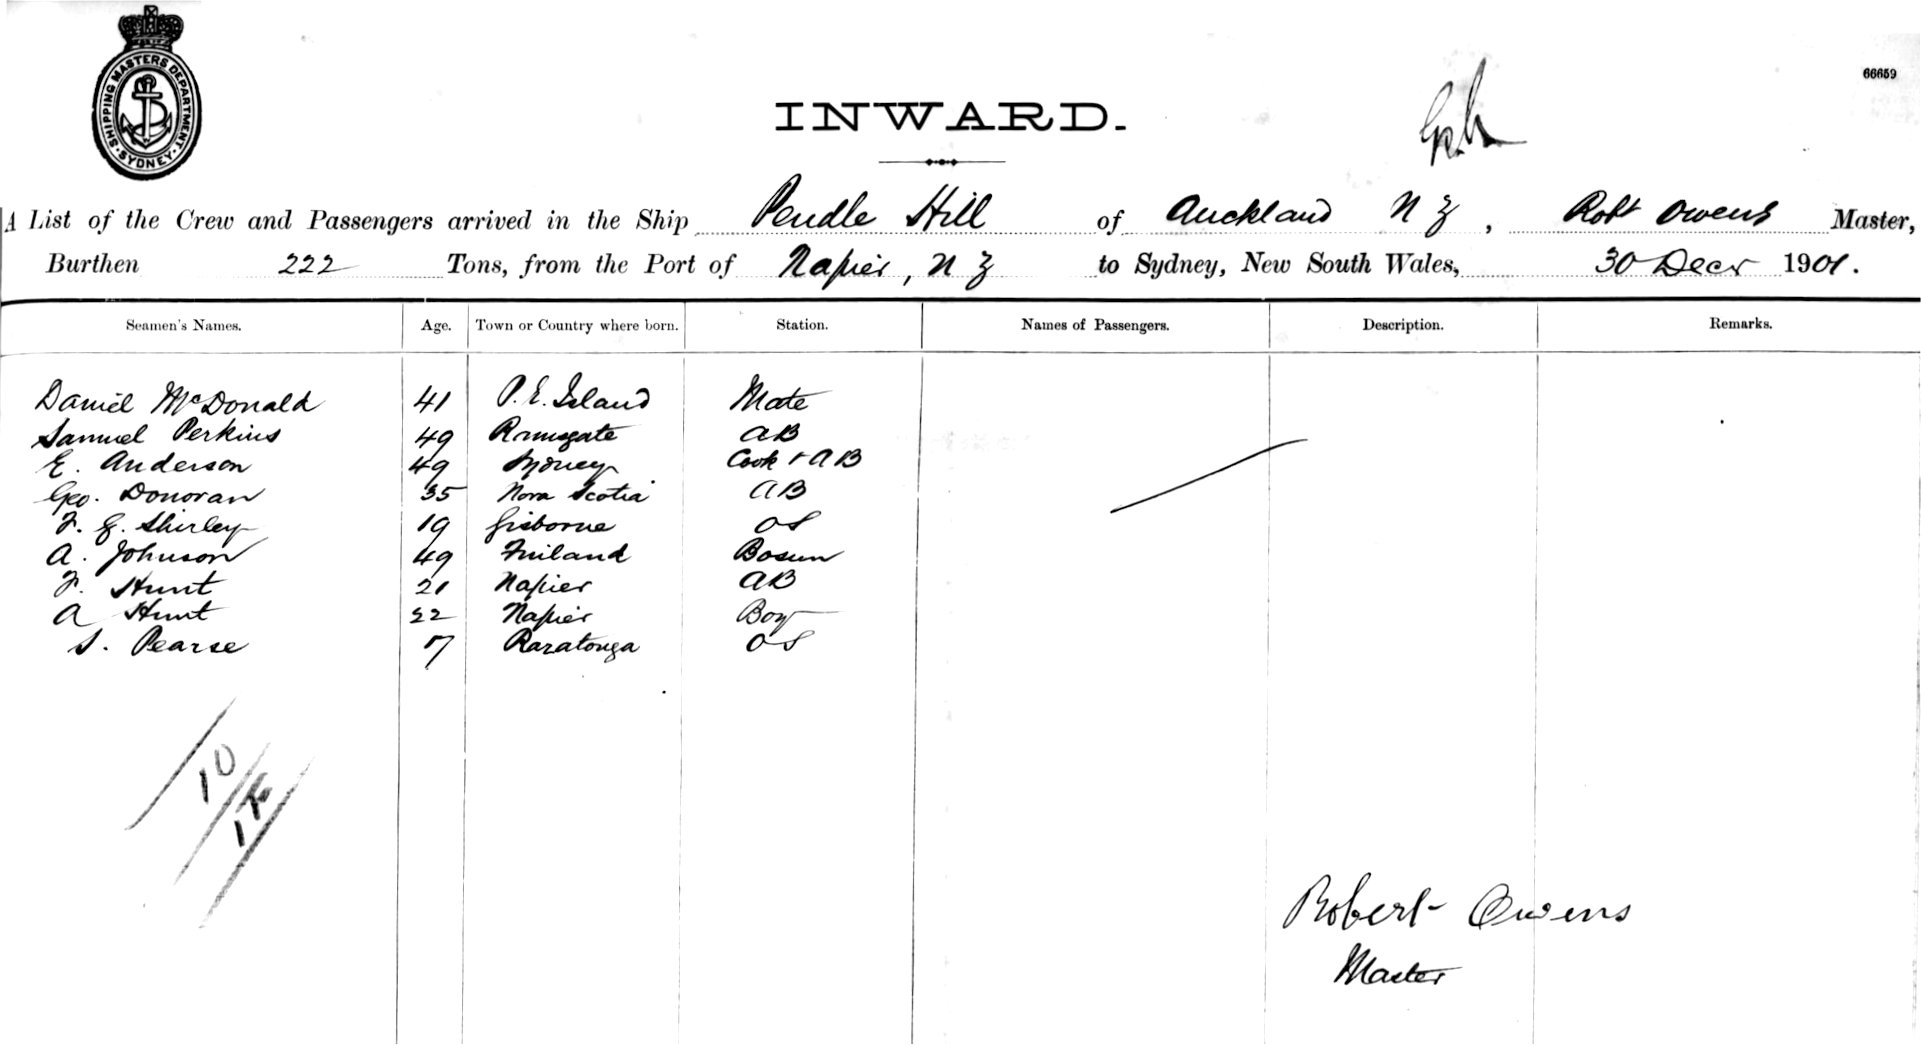 SHIPPING MASTERS DEPARTMENT · SYDNEY ·
66659
INWARD.
A List of the Crew and Passengers arrived in the Ship Pendle Hill of Auckland N Z, Robt Owens Master,
Burthen 222 Tons, from the Port of Napier, N Z to Sydney, New South Wales, 30 Decr 1901.
Seamen's Names. Age. Town or Country where born. Station. Names of Passengers. Description. Remarks.
Daniel McDonald 41 P. E. Island Mate
Samuel Perkins 49 Ramsgate AB
E. Anderson 49 Sydney Cook + AB
Geo. Donovan 35 Nova Scotia AB
F. G. Shirley 19 Gisborne OS
A. Johnson 49 Finland Bosun
F. Hunt 21 Napier AB
A Hunt 22 Napier Boy
S. Pearse 17 Raratonga OS
10
Robert Owens
Master